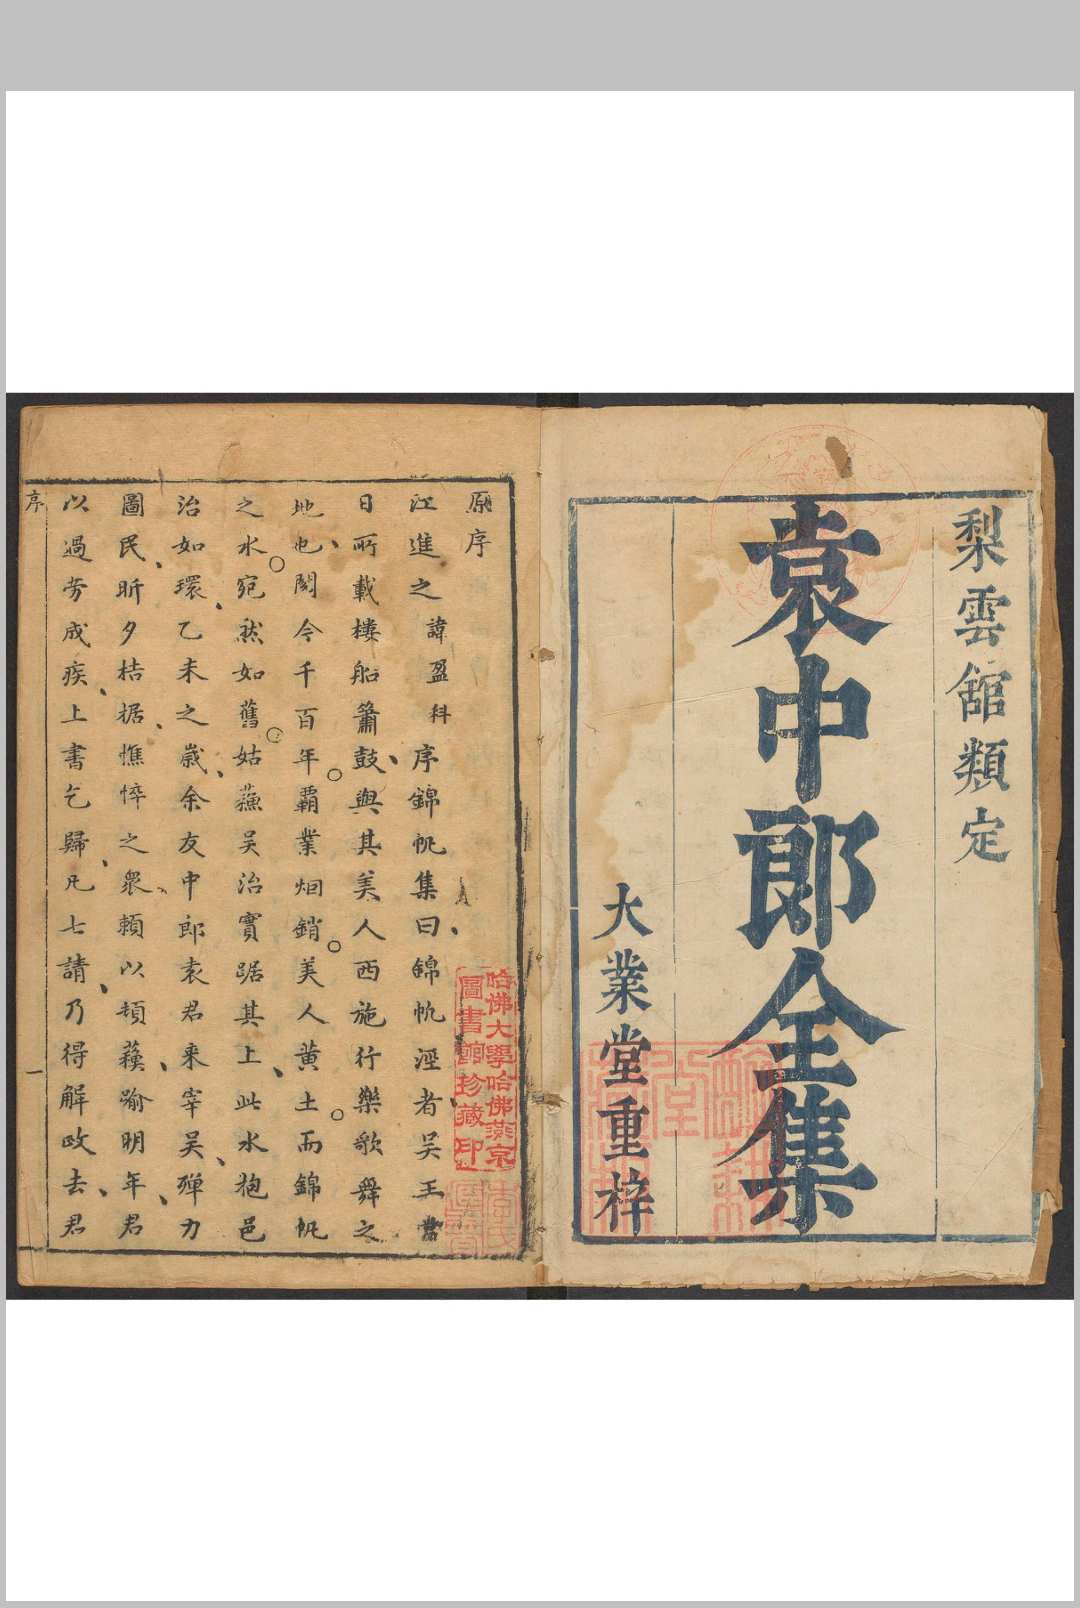 梨雲館類定
袁中郎全集
大業堂重梓
原序
江進之諱盈科序錦帆集曰錦帆涇者吳王當
日所載樓船簫鼓與其美人西施行樂歌舞之
地也闕今千百年霸業烟銷美人黃土而錦帆
之水宛然如舊姑蘓吳治實踞其上此水抱邑
治如環乙未之歲余友中郎袁君來宰吳殫力
圖民昕夕桔据憔悴之衆賴以頓蘓踰明年君
以過劳成疾上書乞歸凡七請乃得解政去君
序
一
哈佛大學哈佛燕京
圖書館珍藏印